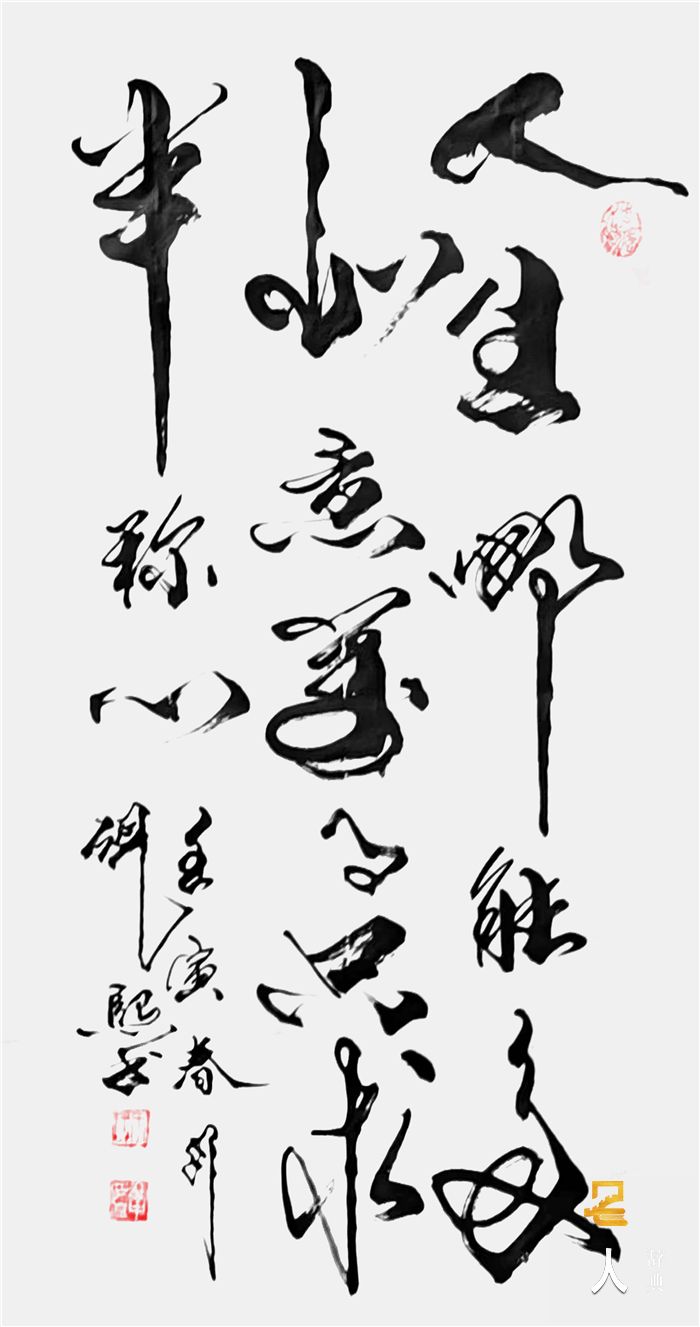 人生哪能多
如意萬事只求
半称心
壬寅春
熙书
人
辞典